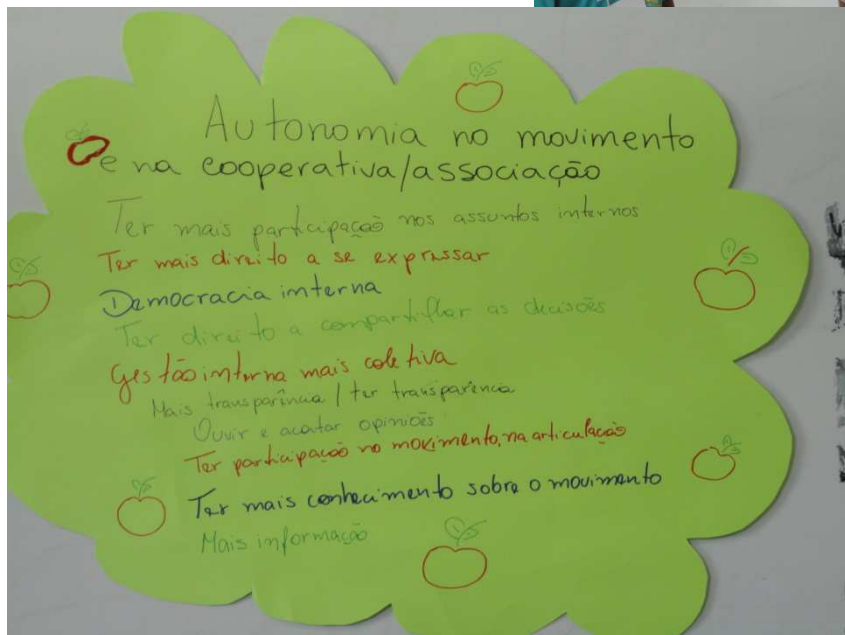 Autonomia no movimento
e na cooperativa/associação
Ter mais participação nos assuntos internos
Ter mais direito a se expressar
Democracia interna
Ter direito a compartilhar as decisões
Gestão interna mais coletiva
Mais transparência / ter transparência
Ouvir e acatar opiniões
Ter participação no movimento, na articulação
Ter mais conhecimento sobre o movimento
Mais informação